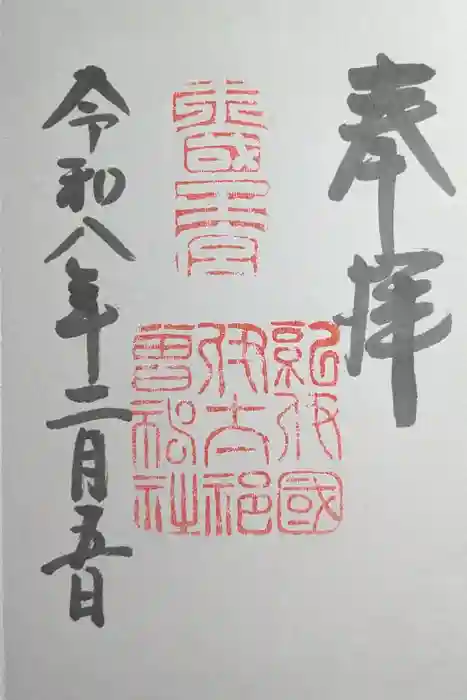 奉拝
紀伊國
伊太祁
曽神社
令和八年二月五日